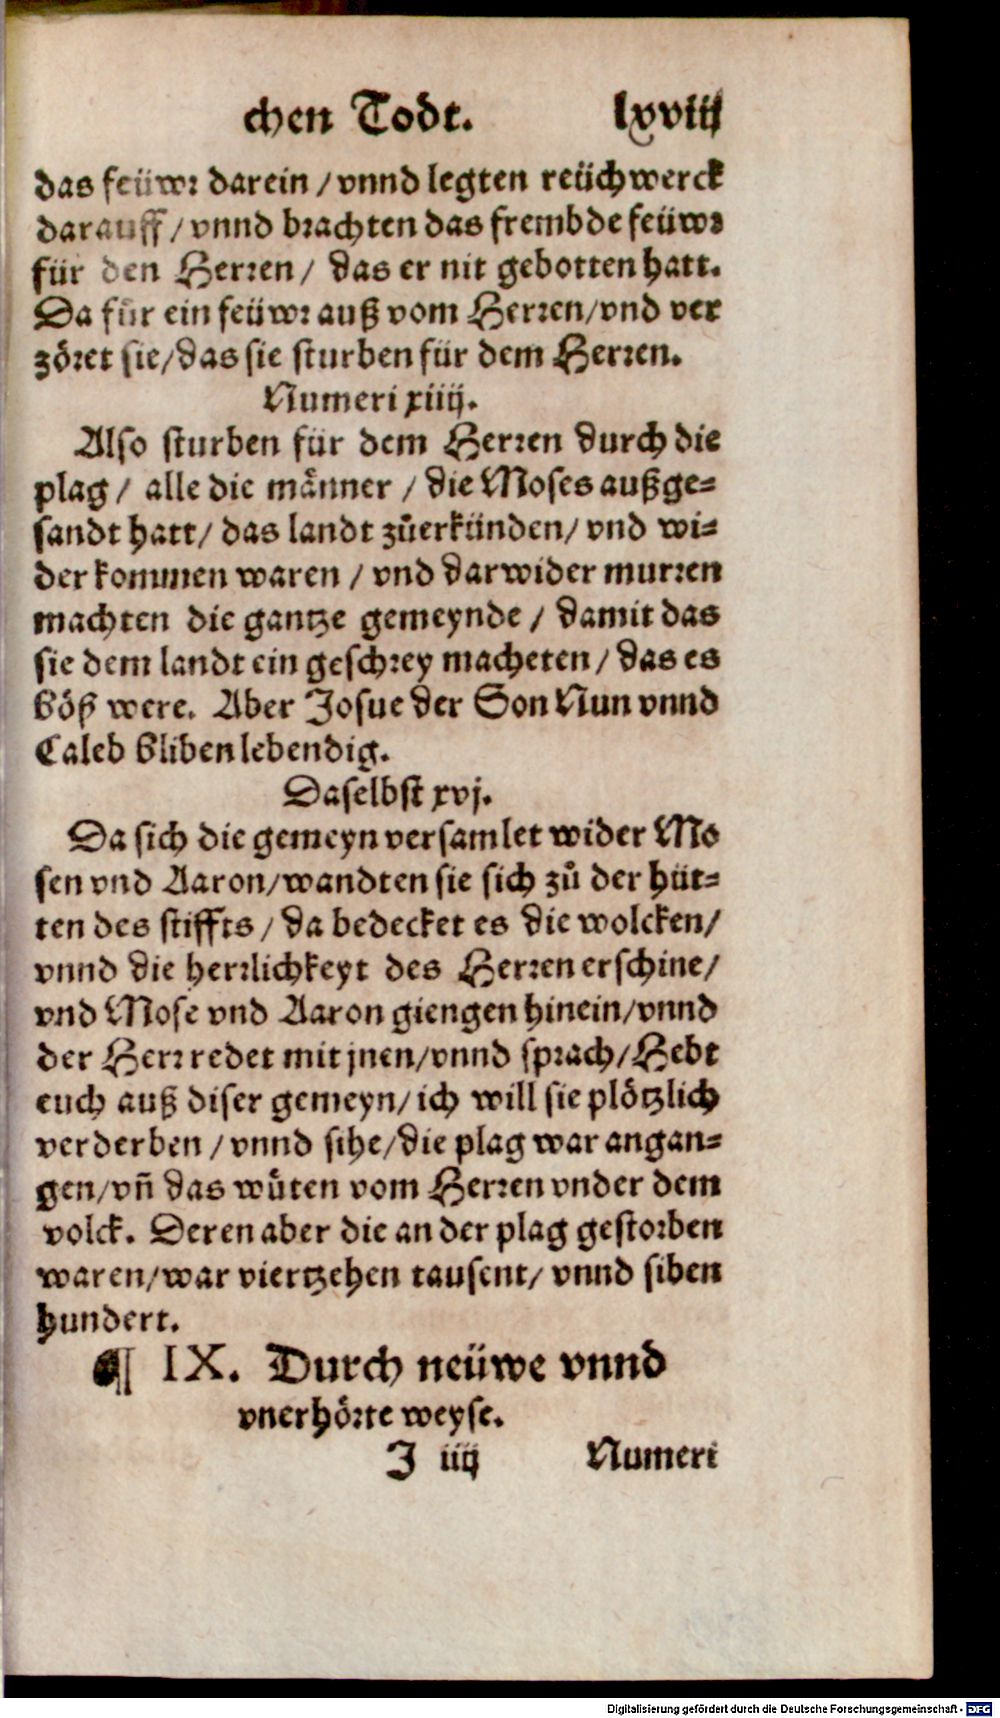 chen Todt. lxviij
das feüwr darein / vnnd legten reüchwerck
darauff / vnnd brachten das frembde feüwr
für den Herren / das er nit gebotten hatt.
Da fůr ein feüwr auß vom Herren / vnd ver
zöret sie / das sie sturben für dem Herren.
Numeri xiiij.
Also sturben für dem Herren durch die
plag / alle die männer / die Moses außge=
sandt hatt / das landt zůerkünden / vnd wi=
der kommen waren / vnd darwider murren
machten die gantze gemeynde / damit das
sie dem landt ein geschrey macheten / das es
böß were. Aber Josue der Son Nun vnnd
Caleb bliben lebendig.
Daselbst xvj.
Da sich die gemeyn versamlet wider Mo
sen vnd Aaron / wandten sie sich zů der hüt=
ten des stiffts / da bedecket es die wolcken /
vnnd die herrlichkeyt des Herren erschine /
vnd Mose vnd Aaron giengen hinein / vnnd
der Herr redet mit jnen / vnnd sprach / Hebt
euch auß diser gemeyn / ich will sie plötzlich
verderben / vnnd sihe / die plag war angan=
gen / vñ das wüten vom Herren vnder dem
volck. Deren aber die an der plag gestorben
waren / war viertzehen tausent / vnnd siben
hundert.
¶ IX. Durch neüwe vnnd
vnerhörte weyse.
J iiij Numeri
Digitalisierung gefördert durch die Deutsche Forschungsgemeinschaft - DFG